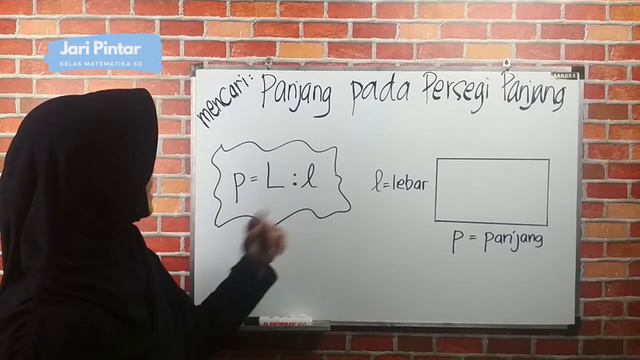 Jari Pintar
KELAS MATEMATIKA SD
mencari: Panjang pada Persegi Panjang
p = L : l
l = lebar
p = panjang